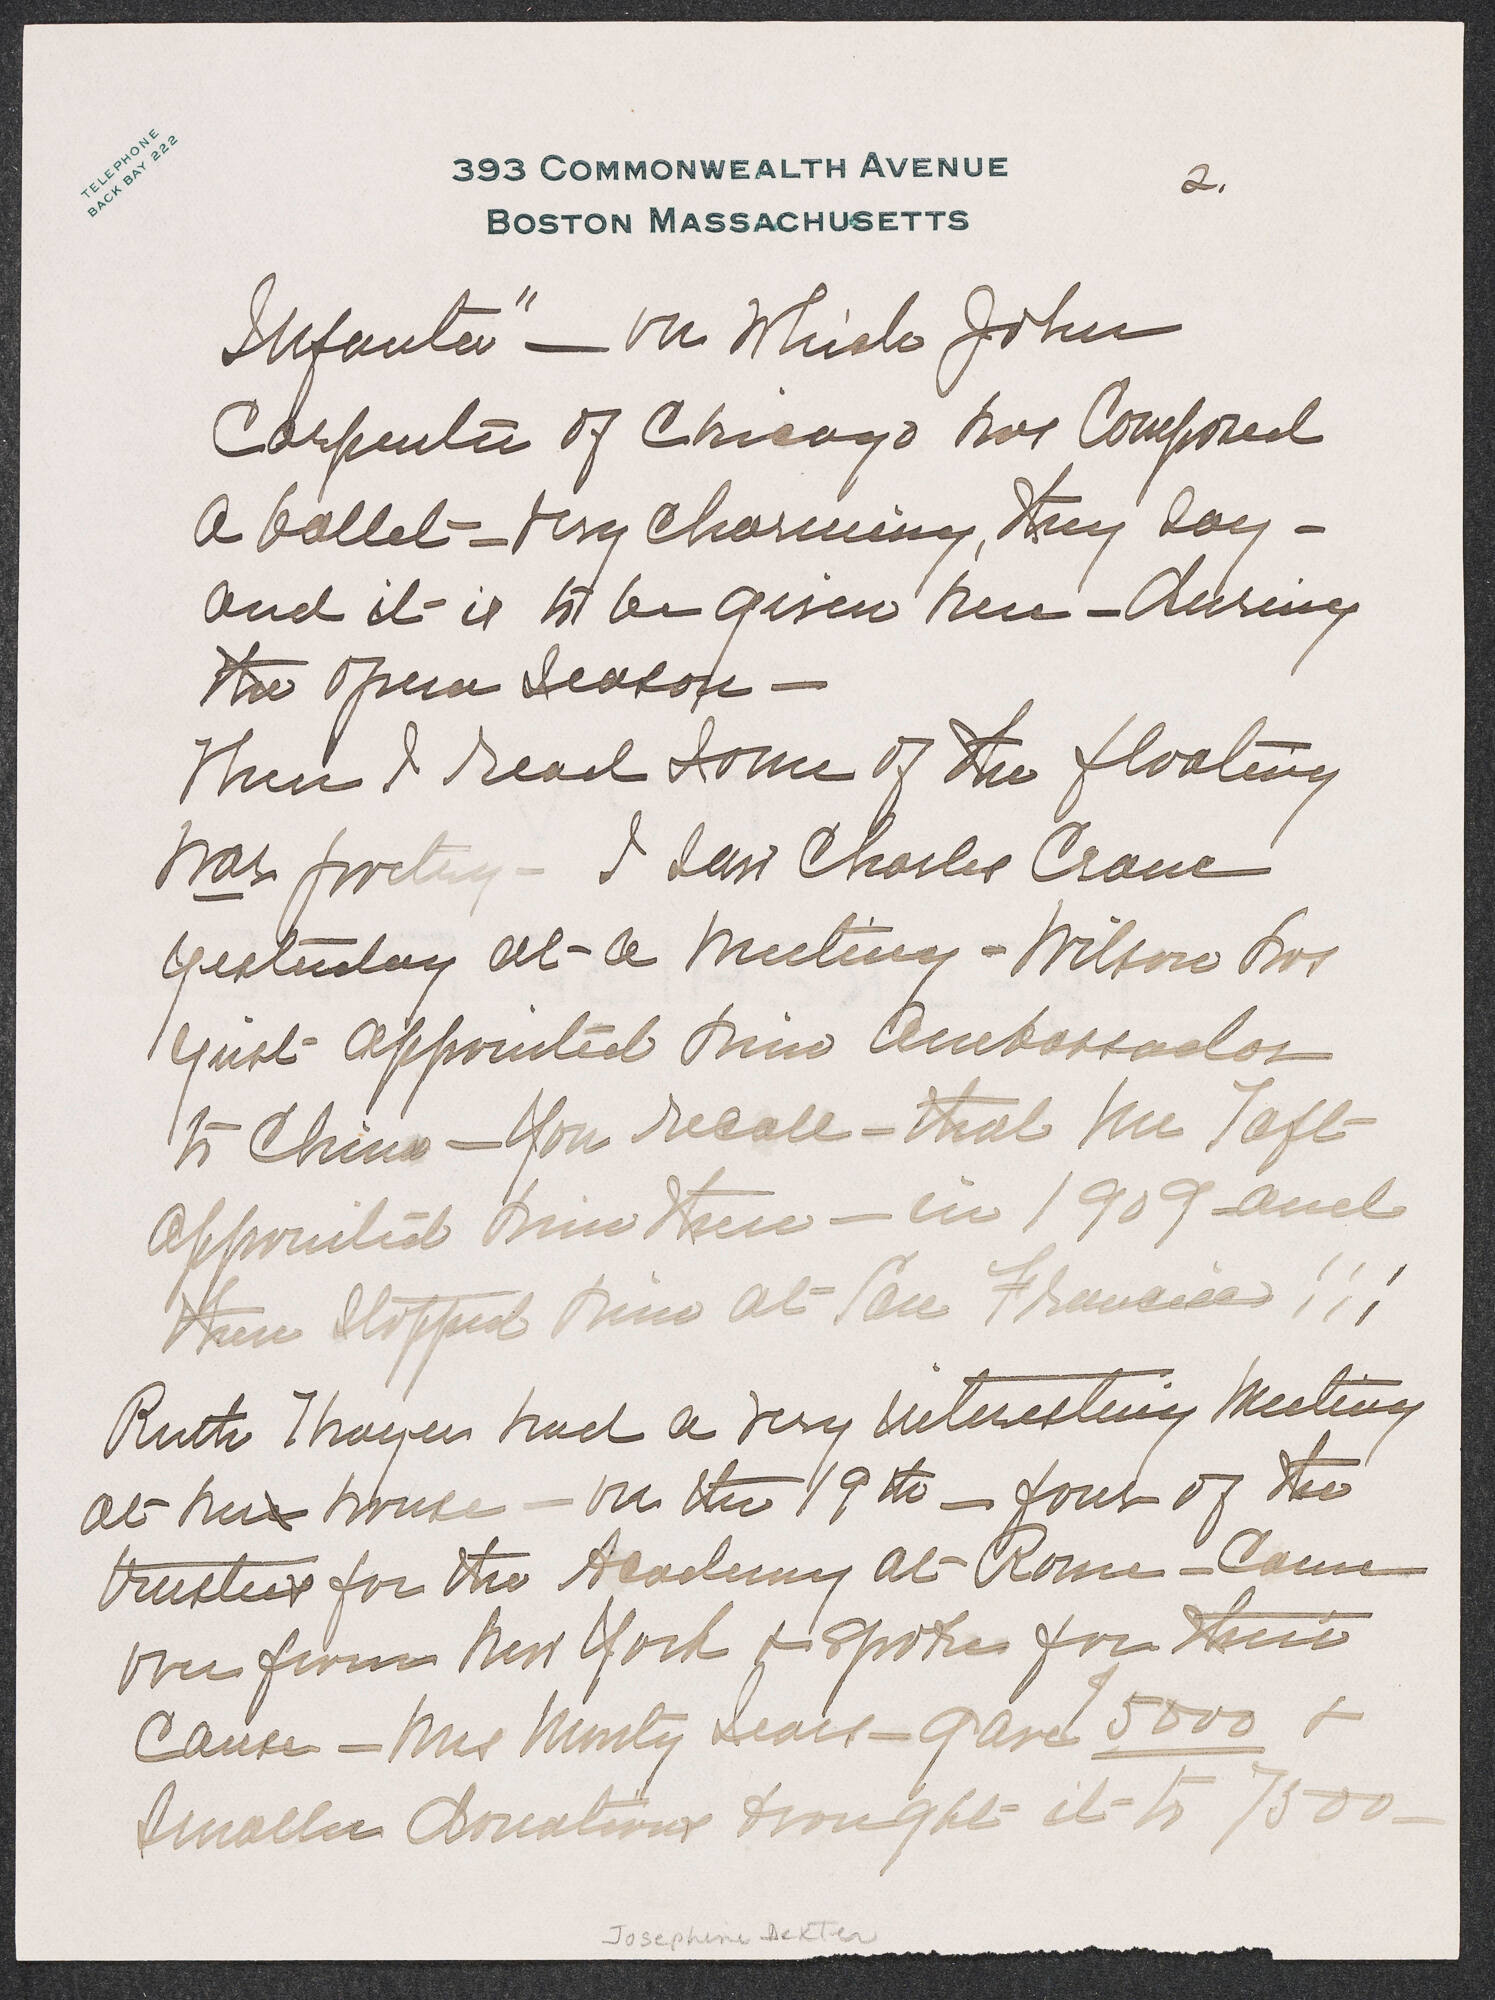 TELEPHONE
BACK BAY 222
393 COMMONWEALTH AVENUE
BOSTON MASSACHUSETTS
2.
Infanta" — on which John
Carpenter of Chicago has composed
a ballet – very charming, they say –
and it is to be given here – during
the opera season –
Then I read some of the floating
war poetry – I saw Charles Crane
yesterday at a meeting – Wilson has
just appointed him Ambassador
to China – You recall – that Mr Taft
appointed him there – in 1909 and
then stopped him at San Francisco !!!
Ruth Thayer had a very interesting meeting
at her house – on the 19th – four of the
trustees for the Academy at Rome – came
over from New York & spoke for their
cause – Mrs Monty Sears – gave $5000 &
smaller donations brought it to 7500 –
Josephine Dexter